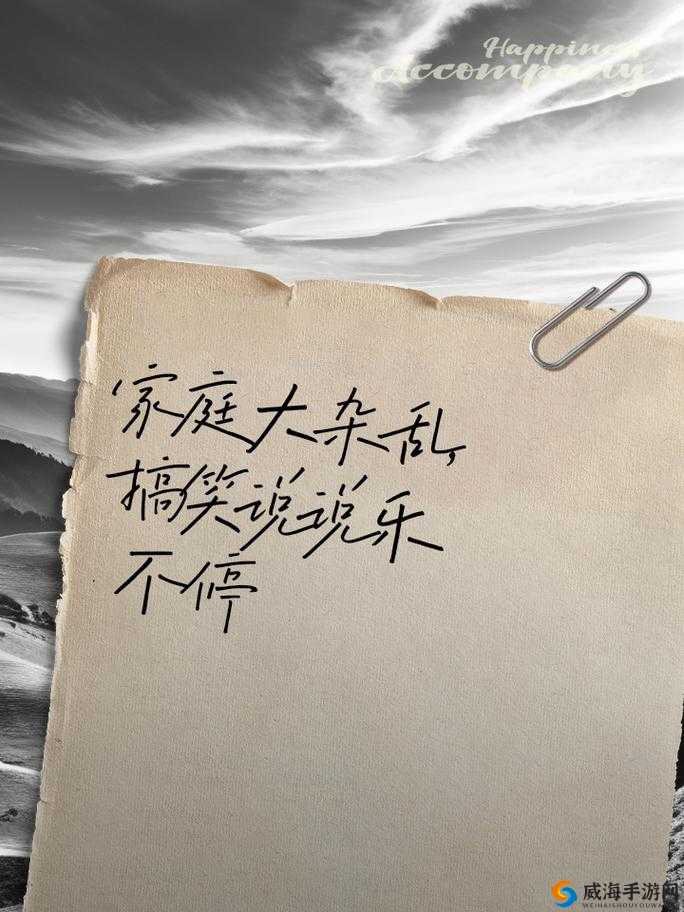 Happiness
Accompany
家庭大杂乱,
搞笑说说乐
不停
威海手游网
WEIHAISHOUYOUWANG